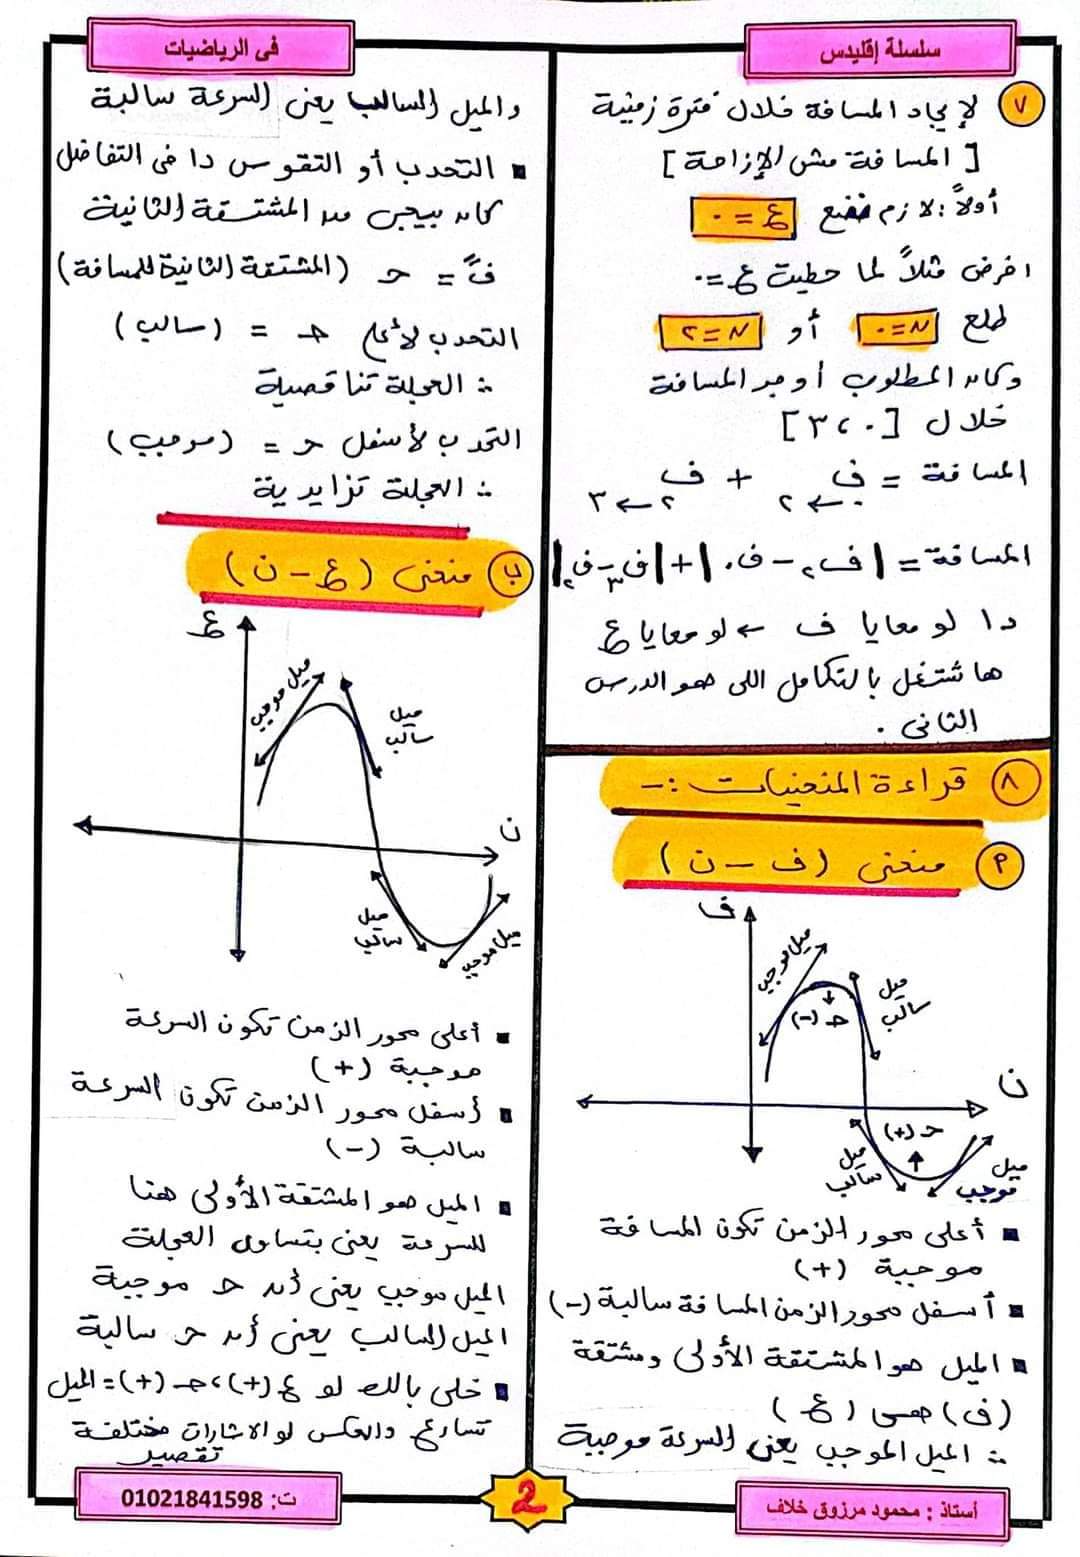 سلسلة إقليدس
فى الرياضيات
٧ لإيجاد المسافة خلال فترة زمنية
[ المسافة مش الإزاحة ]
أولاً : لازم نضع ع = ٠
افرض مثلاً لما حطيت ع = ٠
طلع ن = ٠ أو ن = ٢
وكان المطلوب أوجد المسافة
خلال [ ٠ ، ٣ ]
المسافة = ف ٠ ← ٢ + ف ٢ ← ٣
المسافة = | ف٢ - ف٠ | + | ف٣ - ف٢ |
دا لو معايا ف ← لو معايا ع
هاشتغل بالتكامل اللى هو الدرس
الثانى .
٨ قراءة المنحنيات :-
P منحنى ( ف - ن )
ف
ميل موجب
ميل
سالب
حـ (-)
ن
حـ (+)
ميل
سالب
ميل
موجب
▪ أعلى محور الزمن تكون المسافة
موجبة (+)
▪ أسفل محور الزمن المسافة سالبة (-)
▪ الميل هو المشتقة الأولى ومشتقة
(ف) هى (ع)
∴ الميل الموجب يعنى السرعة موجبة
والميل السالب يعنى السرعة سالبة
▪ التحدب أو التقوس دا فى التفاضل
كان بييجى من المشتقة الثانية
فً = حـ (المشتقة الثانية للمسافة)
التحدب لأعلى حـ = (سالب)
∴ العجلة تناقصية
التحدب لأسفل حـ = (موجب)
∴ العجلة تزايدية
ب منحنى ( ع - ن )
ع
ميل موجب
ميل
سالب
ن
ميل
سالب
ميل موجب
▪ أعلى محور الزمن تكون السرعة
موجبة (+)
▪ أسفل محور الزمن تكون السرعة
سالبة (-)
▪ الميل هو المشتقة الأولى هنا
للسرعة يعنى بتساوى العجلة
الميل موجب يعنى أن حـ موجبة
الميل السالب يعنى أن حـ سالبة
▪ خلى بالك لو ع (+) ، حـ (+) = الميل
تسارع والعكس لو الاشارات مختلفة
تقصير
أستاذ : محمود مرزوق خلاف
2
ت: 01021841598